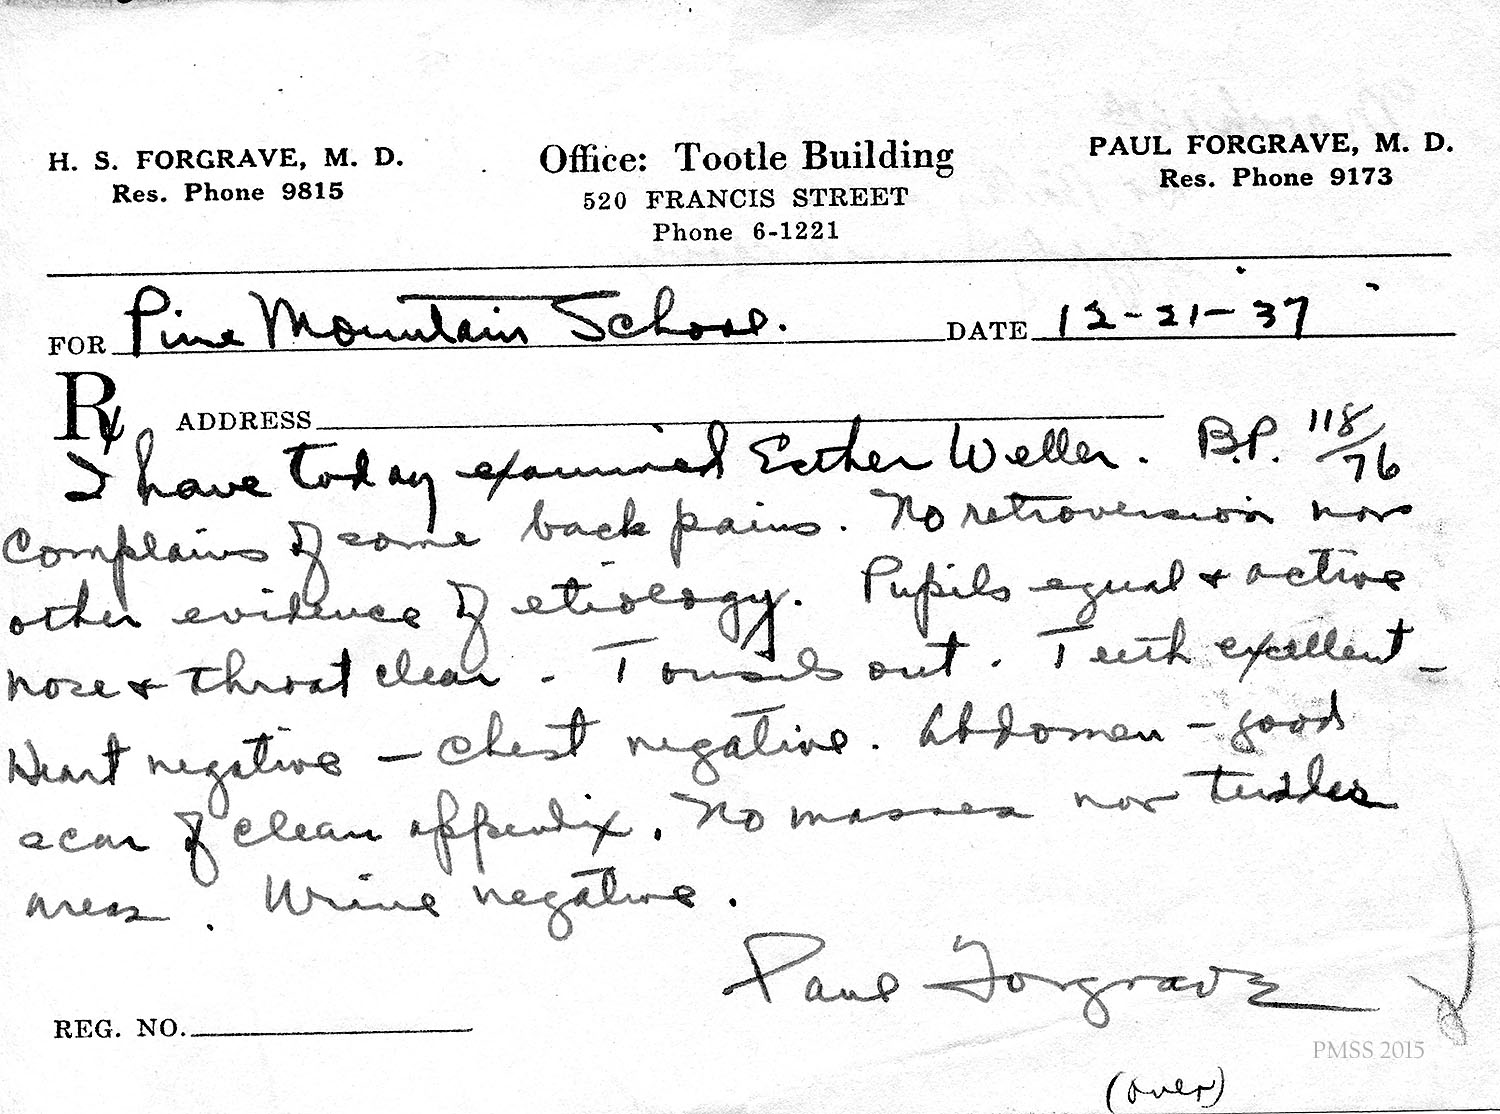 H. S. FORGRAVE, M. D.
Res. Phone 9815
Office: Tootle Building
520 FRANCIS STREET
Phone 6-1221
PAUL FORGRAVE, M. D.
Res. Phone 9173
FOR Pine Mountain School. DATE 12-21-37
Rx ADDRESS
I have today examined Esther Weller. B.P. 118/76
Complains of some back pains. No retroversion nor
other evidence of etiology. Pupils equal & active
nose & throat clear - Tonsils out. Teeth excellent -
Heart negative - chest negative. Abdomen - good
scar of clean appendix. No masses nor tender
areas. Urine negative.
Paul Forgrave
REG. NO.
PMSS 2015
(over)